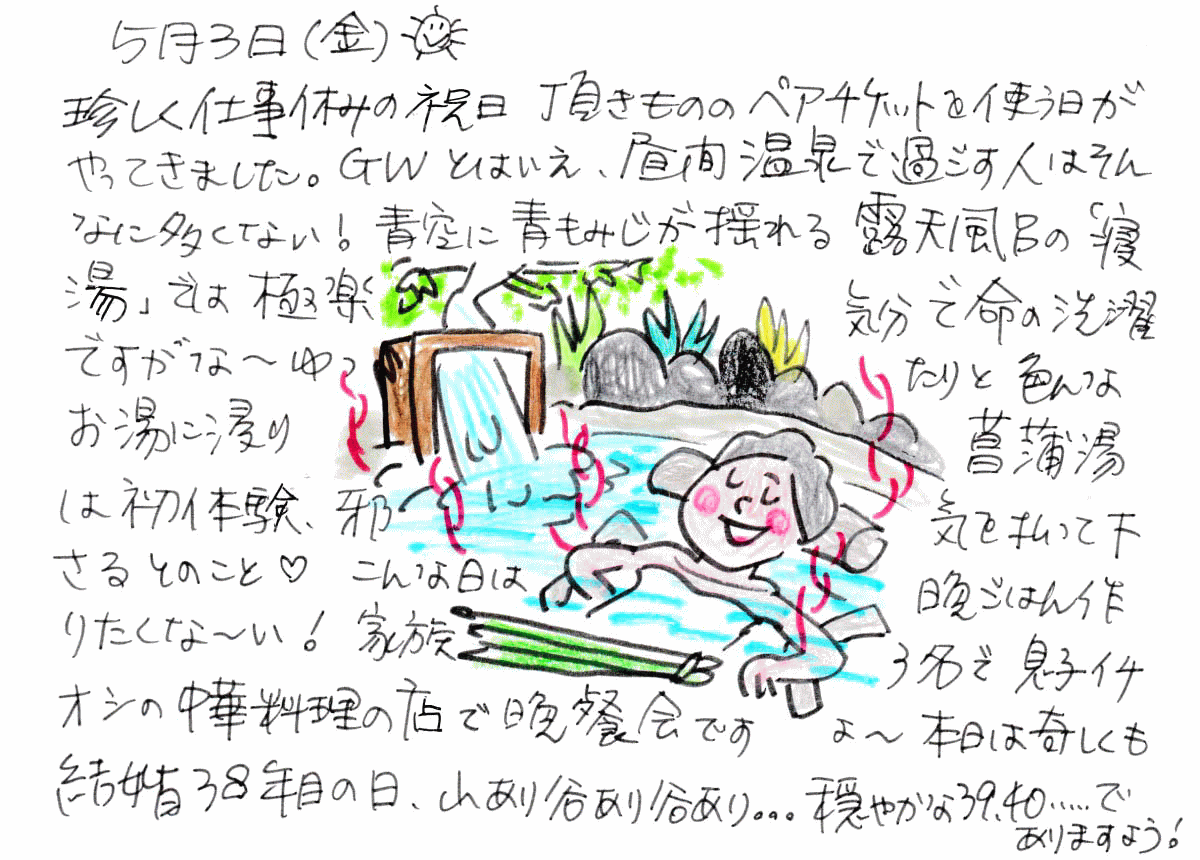 5月3日(金)
珍しく仕事休みの祝日 頂きもののペアチケットを使う日が
やってきました。GWとはいえ、昼間温泉で過ごす人はそん
なに多くない! 青空に青もみじが揺れる 露天風呂の「寝
湯」では極楽 気分で命の洗濯
ですがな〜ゆっ たりと色んな
お湯に浸り 菖蒲湯
は初体験、邪 気を払って下
さるとのこと♡ こんな日は 晩ごはん作
りたくな〜い! 家族 3名で息子イチ
オシの中華料理の店で晩餐会です よ〜本日は奇しくも
結婚38年目の日、山あり谷あり谷あり...穏やかな39.40.....で
ありますよう!